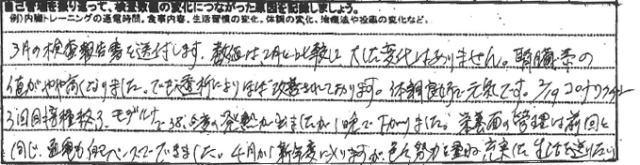 自己管理を振り返って、検査数値の変化につながった原因を記録しましょう。
例）内臓トレーニングの通電時間、食事内容、生活習慣の変化、体調の変化、治療法や投薬の変化など。
3月の検査報告書を送付します。数値は2月と比較し大した変化はありません。
値がやや高くなりました。でも透析によりほぼ改善されております。体調良好で元気です。2/19 コロナワクチン
3回目接種終了、モデルナで38.5度の発熱が出ましたが1晩で下がりました。栄養面の管理は前回と
同じ、通電も同ペースでできました。4月から新年度に入りますが、努力を重ね